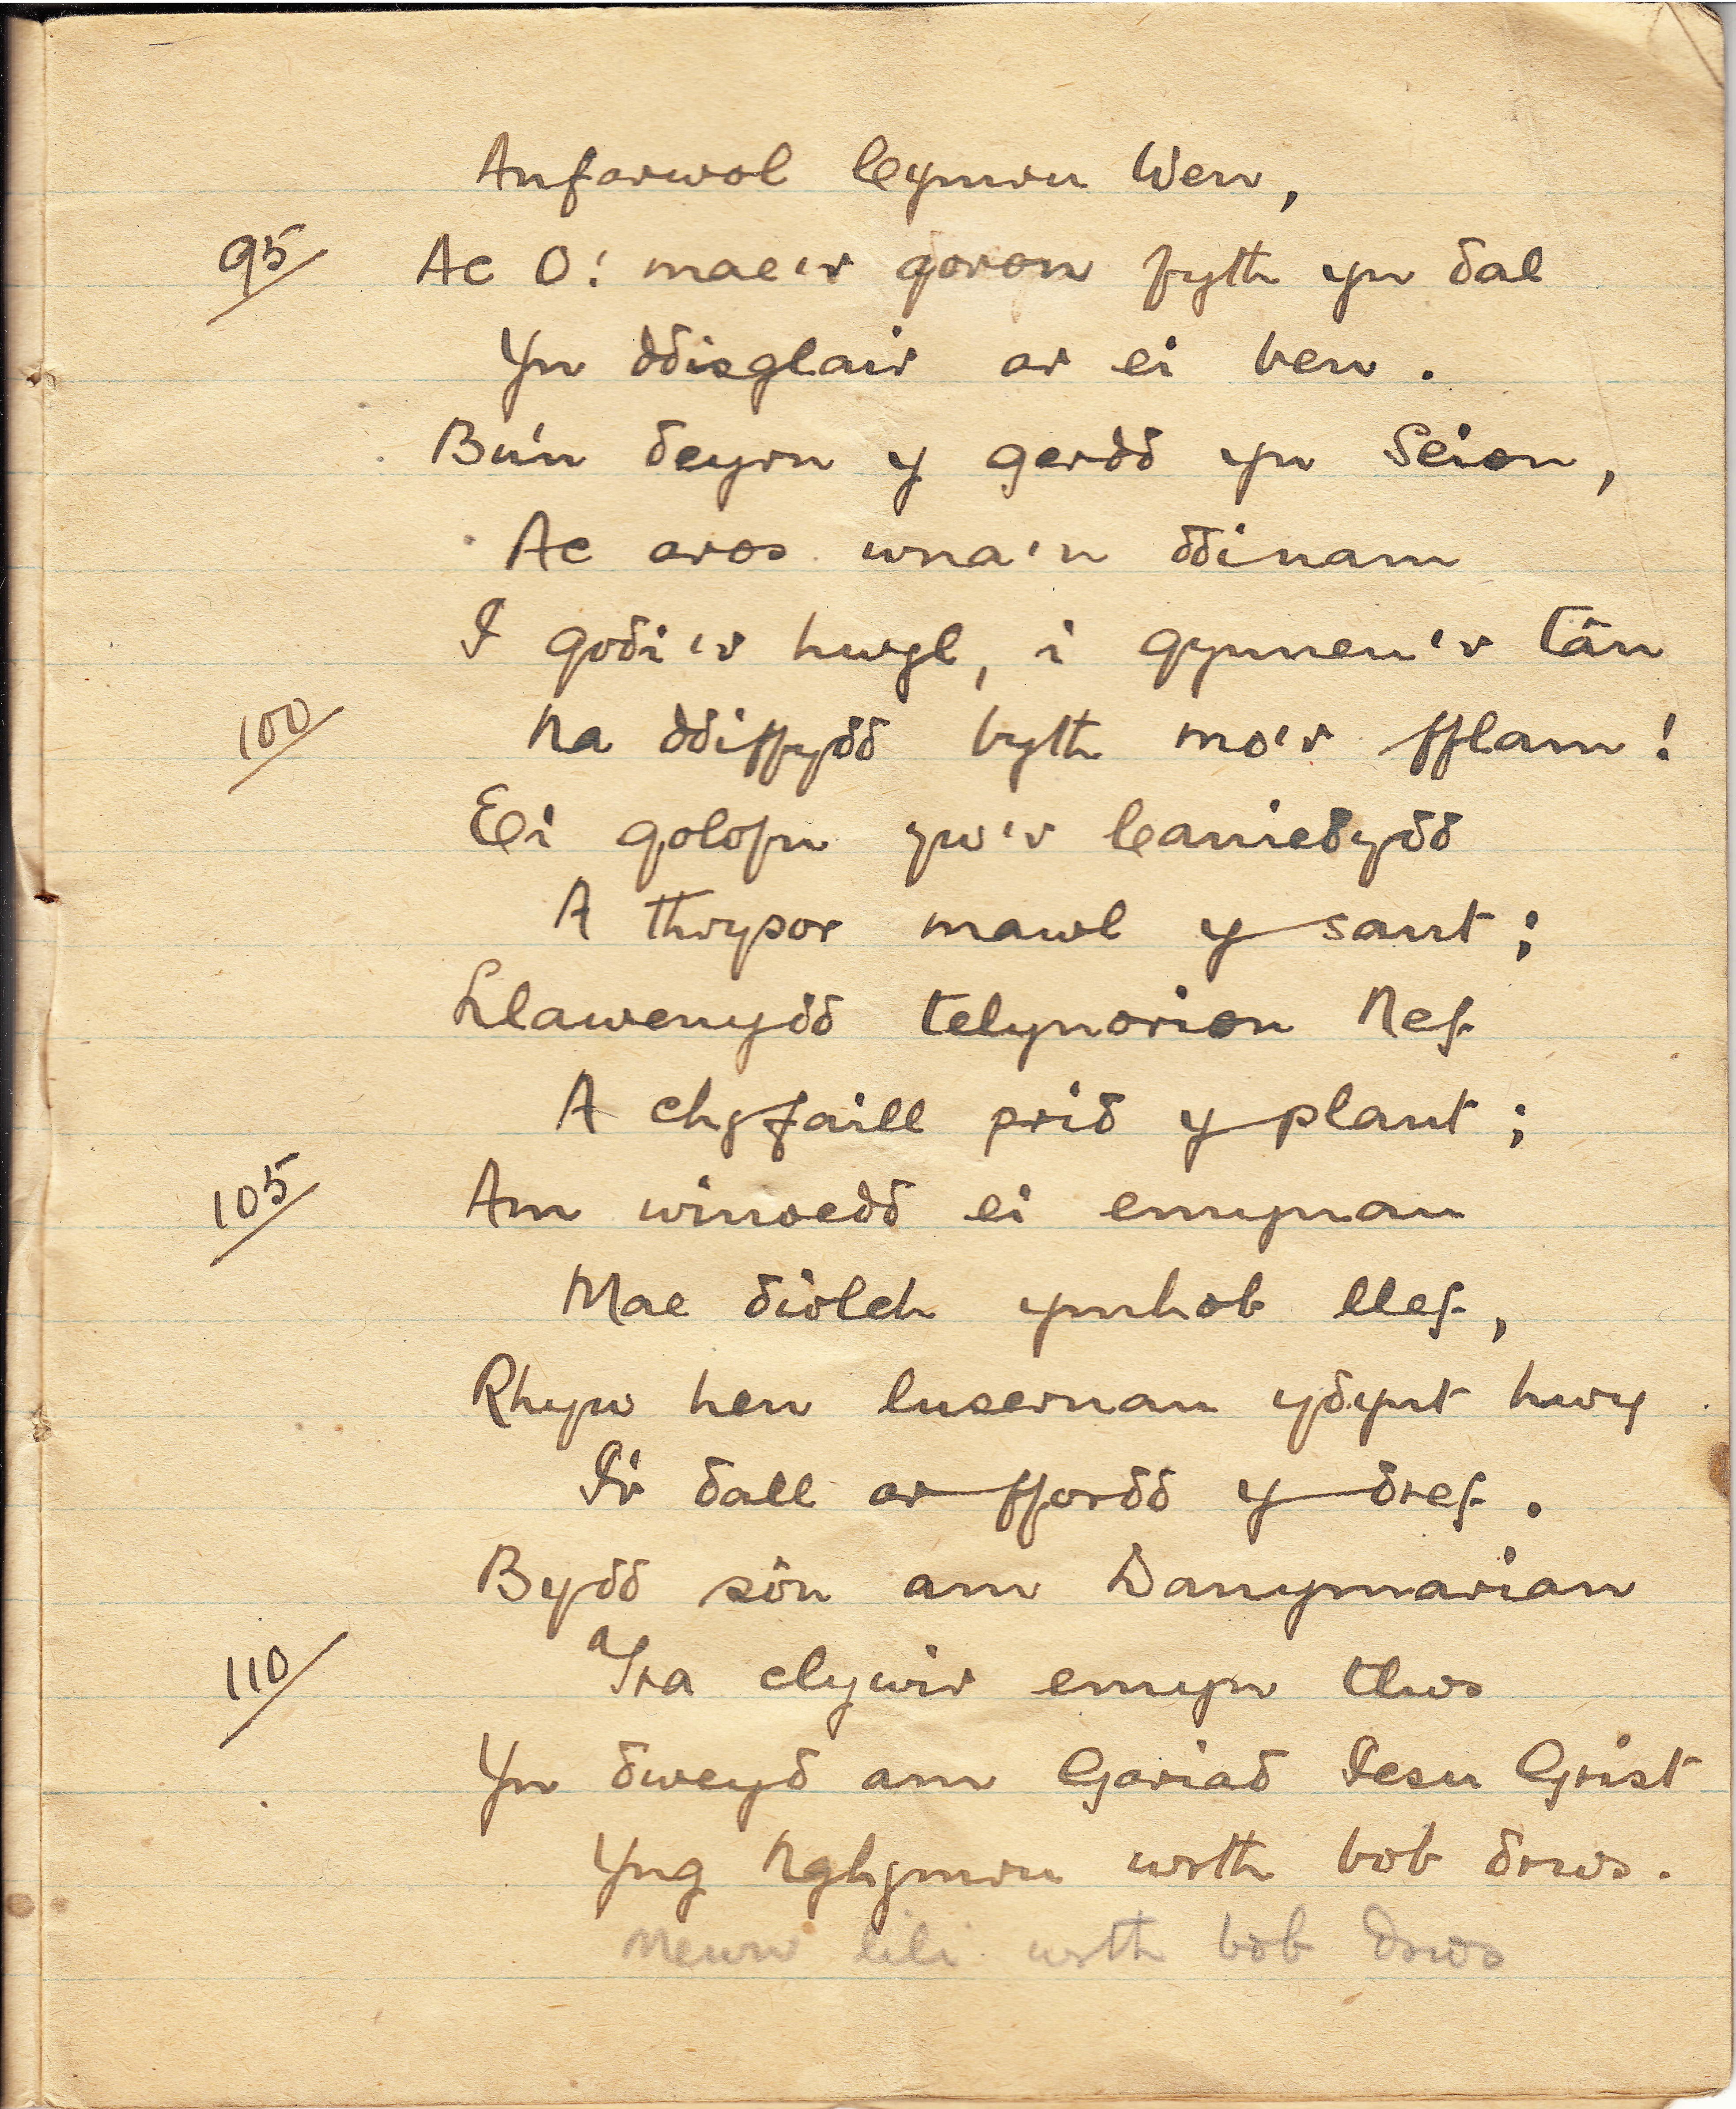 Anfarwol Gymru Wen,
95/ Ac O! mae'r goron fyth yn dal
Yn ddisglair ar ei ben.
Bu'n deyrn y gerdd yn Seion,
Ac aros wna'n ddinam
I godi'r hwyl, i gynneu'r tân
100/ Na ddiffydd byth mo'r fflam!
Ei golofn yw'r Caniedydd
A thrysor mawl y sant;
Llawenydd telynorion Nef
A chyfaill prid y plant;
105/ Am winoedd ei emynau
Mae diolch ymhob llef,
Rhyw hen lusernau ydynt hwy
I'r dall ar ffordd y dref.
Bydd sôn am Danymarian
110/ a Tra clywir emyn tlws
Yn dweyd am Gariad Iesu Grist
Yng Nghymru wrth bob drws.
Mewn lili wrth bob drws